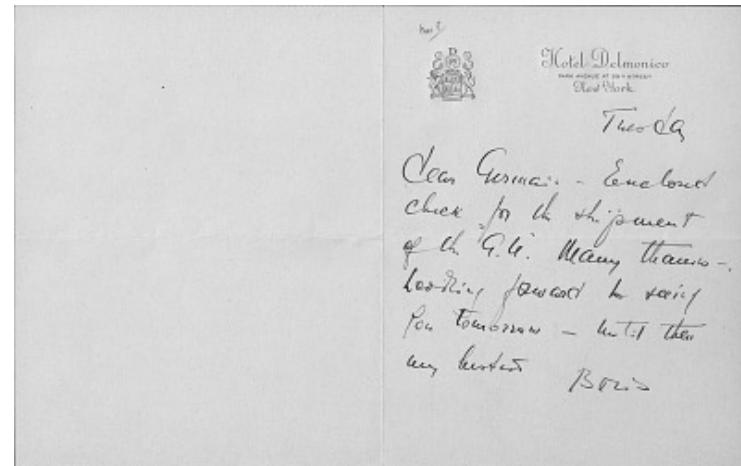 Hotel Delmonico
PARK AVENUE AT 59TH STREET
New York
Dear Germain - Enclosed
check for the shipment
of the G.U. Many thanks -
looking forward to seeing
you tomorrow - until then
my
Boris